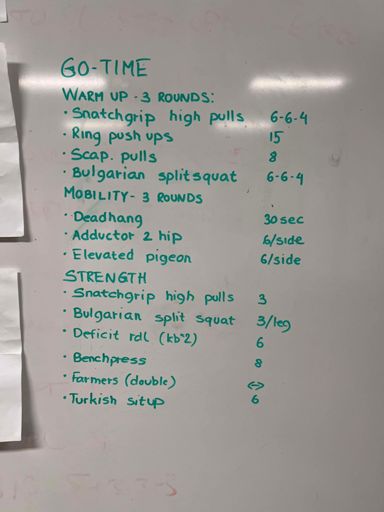 GO-TIME
WARM UP - 3 ROUNDS:
· Snatchgrip high pulls 6-6-4
· Ring push ups 15
· Scap. pulls 8
· Bulgarian splitsquat 6-6-4
MOBILITY- 3 ROUNDS
· Deadhang 30 sec
· Adductor 2 hip 6/side
· Elevated pigeon 6/side
STRENGTH
· Snatchgrip high pulls 3
· Bulgarian split squat 3/leg
· Deficit rdl (kb*2) 6
· Benchpress 8
· Farmers (double) ↔
· Turkish situp 6